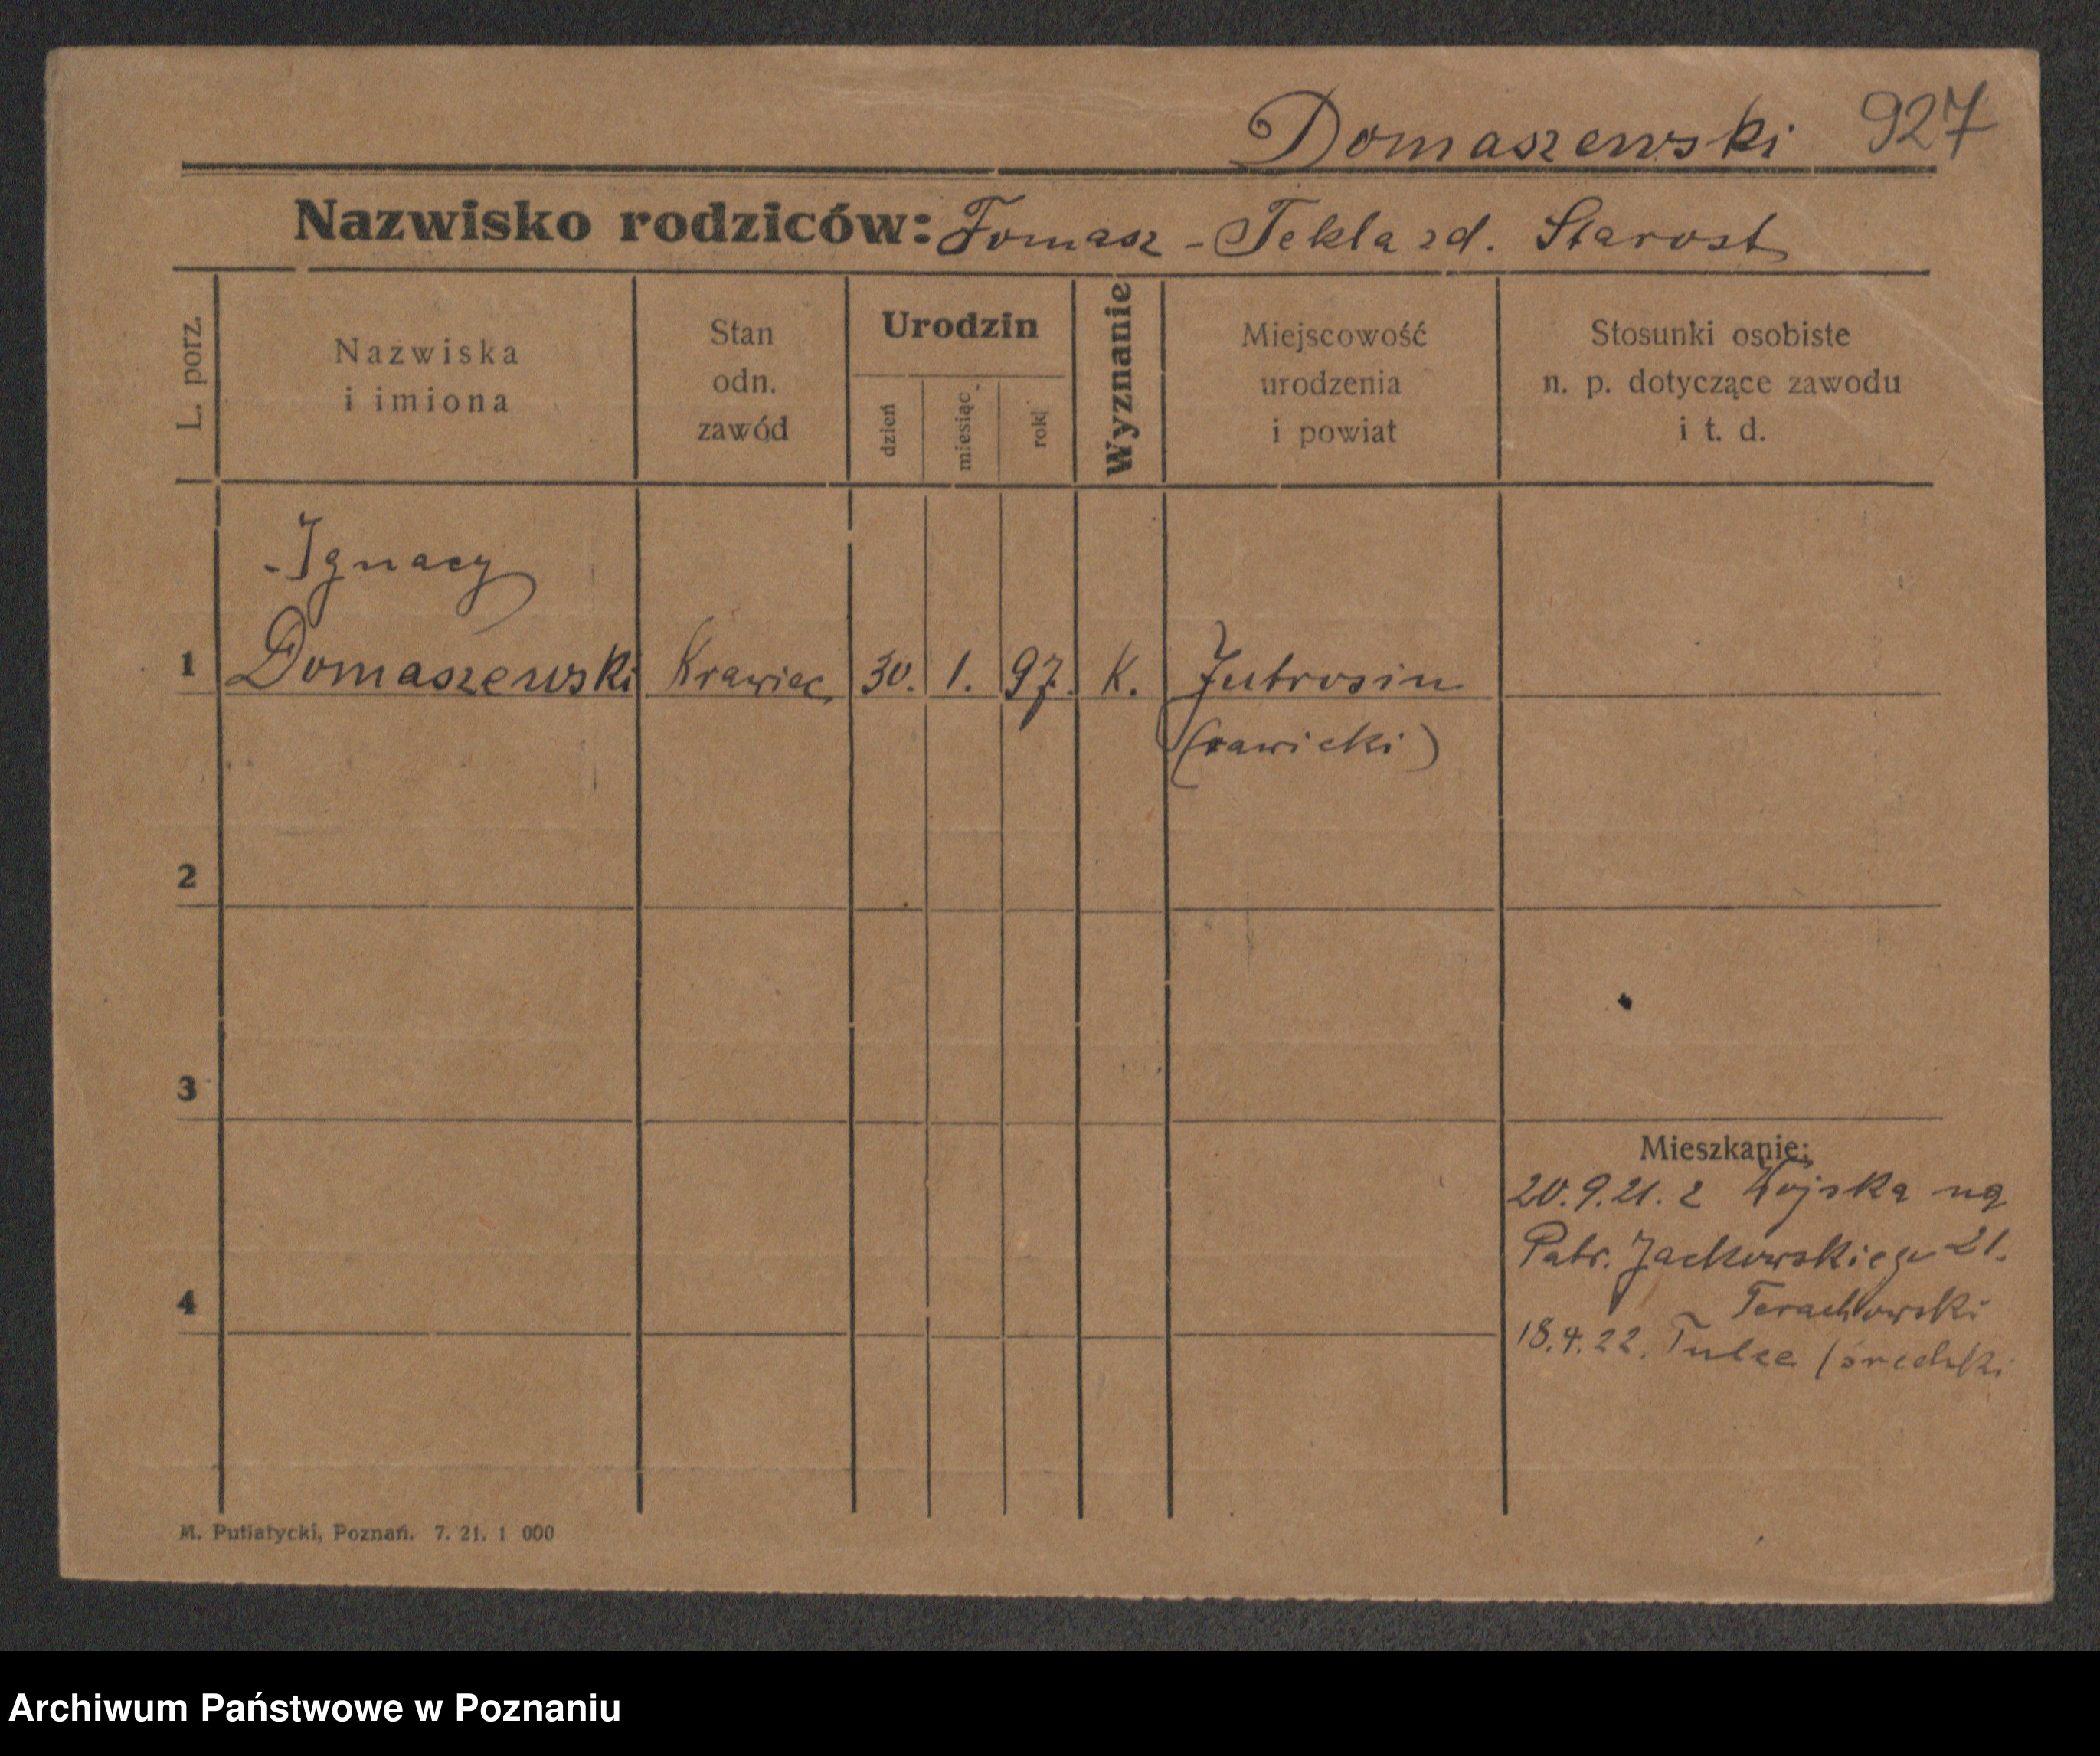 Domaszewski 927
Nazwisko rodziców: Tomasz - Tekla zd. Starost
L. porz.
Nazwiska
i imiona
Stan
odn.
zawód
Urodzin
dzień
miesiąc
rok
Wyznanie
Miejscowość
urodzenia
i powiat
Stosunki osobiste
n. p. dotyczące zawodu
i t. d.
Ignacy
1 Domaszewski Krawiec 30. 1. 97. K. Jutrosin
(rawicki)
2
3
Mieszkanie:
20.9.21. z Wojska na
Patr. Jackowskiego 21.
Terachowski
4
18.4.22. Tulce (średzki
M. Putiatycki, Poznań. 7. 21. 1 000
Archiwum Państwowe w Poznaniu